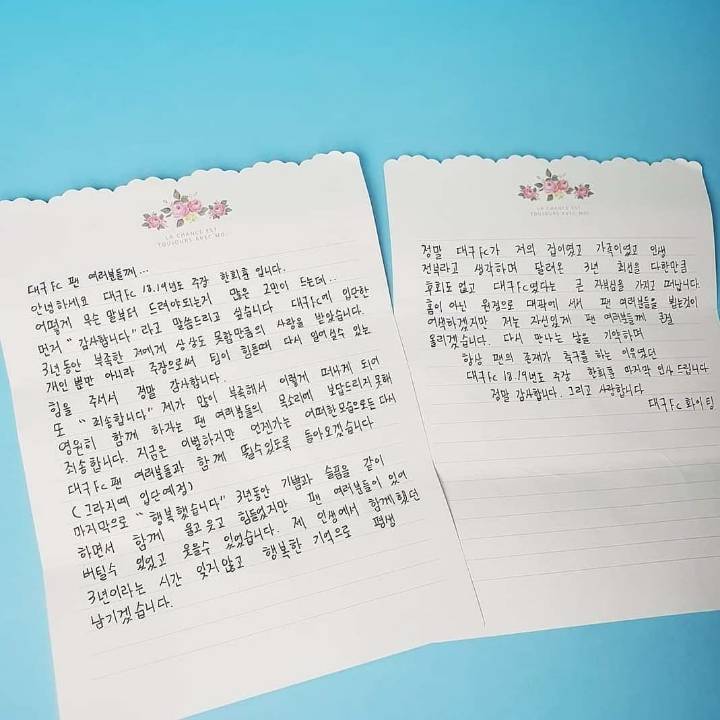 LA CHANCE EST
TOUJOURS AVEC MOI
대구Fc 팬 여러분들께...
안녕하세요 대구Fc 18.19년도 주장 한희훈 입니다.
어떻게 무슨 말부터 드려야되는지 많은 고민이 드는데...
먼저 "감사합니다"라고 말씀드리고 싶습니다 대구Fc에 입단한
3년동안 부족한 저에게 상상도 못할만큼의 사랑을 받았습니다.
개인 뿐만 아니라 주장으로써 팀이 힘들때 다시 일어설수 있는
힘을 주셔서 정말 감사합니다.
또 "죄송합니다" 제가 많이 부족해서 이렇게 떠나게 되어
영원히 함께 하자는 팬 여러분들의 목소리에 보답드리지 못해
죄송합니다. 지금은 이별하지만 언젠가는 어떠한모습으로든 다시
대구Fc팬 여러분들과 함께 뛸수있도록 돌아오겠습니다
(그라지예 입단예정)
마지막으로 "행복했습니다" 3년동안 기쁨과 슬픔을 같이
하면서 함께 울고웃고 힘들었지만 팬 여러분들이 있어
버틸수 있었고 웃을수 있었습니다. 제 인생에서 함께했던
3년이라는 시간 잊지않고 행복한 기억으로 평생
남기겠습니다.
LA CHANCE EST
TOUJOURS AVEC MOI
정말 대구Fc가 저의 집이였고 가족이였고 인생
전부라고 생각하며 달려온 3년 최선을 다한만큼
후회도 없고 대구Fc였다는 큰 자부심을 가지고 떠납니다.
홈이 아닌 원정으로 대팍에 서서 팬 여러분들을 뵙는것이
어색하겠지만 저는 자신있게 팬 여러분들께 큰절
올리겠습니다. 다시 만나는 날을 기약하며
항상 팬의 존재가 축구를 하는 이유였던
대구Fc 18.19년도 주장 한희훈 마지막 인사 드립니다
정말 감사합니다. 그리고 사랑합니다
대구Fc 화이팅